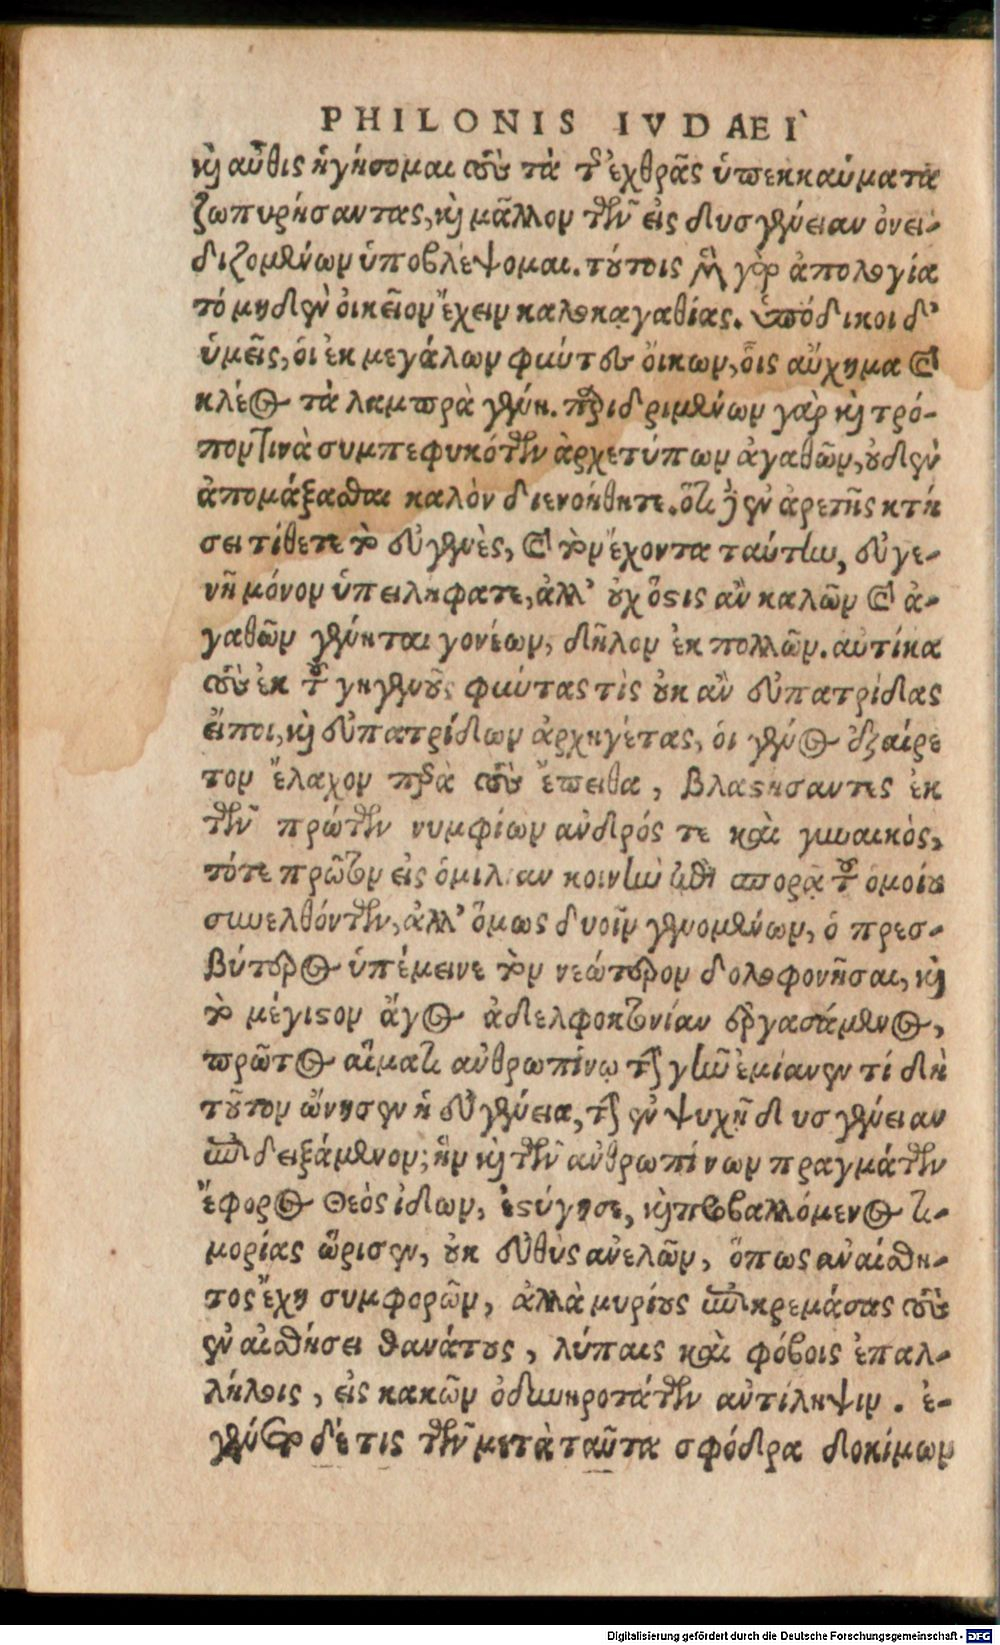 PHILONIS IVDAEI
καὶ αὖθις ἡγήσομαι τοὺς τὰ τῆς ἐχθρᾶς ὑπεκκαύματα
ζωπυρήσαντας, καὶ μᾶλλον τῶν εἰς δυσγένειαν ὀνει-
διζομένων ὑποβλέψομαι. τούτοις μὲν γὰρ ἀπολογία
τὸ μηδὲν οἰκεῖον ἔχειν καλοκαγαθίας. ὑπόδικοι δ'
ὑμεῖς, οἱ ἐκ μεγάλων φύντες οἴκων, οἷς αὔχημα καὶ
κλέος τὰ λαμπρὰ γένη. παριδρυμένων γὰρ καὶ τρό-
πον τινὰ συμπεφυκότων ἀρχετύπων ἀγαθῶν, οὐδὲν
ἀπομάξασθαι καλὸν διενοήθητε. ὅτι δ' ἐν ἀρετῆς κτή
σει τίθεται τὸ εὐγενὲς, καὶ τὸν ἔχοντα ταύτην, εὐγε-
νῆ μόνον ὑπειλήφατε, ἀλλ' οὐχ ὅστις ἂν καλῶν καὶ ἀ-
γαθῶν γένηται γονέων, δῆλον ἐκ πολλῶν. αὐτίκα
τοὺς ἐκ τοῦ γηγενοῦς φύντας τίς οὐκ ἂν εὐπατρίδας
εἴποι, καὶ εὐπατρίδων ἀρχηγέτας, οἱ γένος ἐξαίρε
τον ἔλαχον παρὰ τοὺς ἔπειτα, βλαστήσαντες ἐκ
τῶν πρώτων νυμφίων ἀνδρός τε καὶ γυναικὸς,
τότε πρῶτον εἰς ὁμιλίαν κοινὴν ἐπὶ σπορᾷ τοῦ ὁμοίου
συνελθόντων, ἀλλ' ὅμως δυοῖν γενομένων, ὁ πρεσ-
βύτερος ὑπέμεινε τὸν νεώτερον δολοφονῆσαι, καὶ
τὸ μέγιστον ἄγος ἀδελφοκτονίαν ἐργασάμενος,
πρῶτος αἵματι ἀνθρωπίνῳ τὴν γῆν ἐμίανεν τί δὴ
τοῦτον ὤνησεν ἡ εὐγένεια, τὴν ἐν ψυχῇ δυσγένειαν
ἐπιδειξάμενον; ἣν καὶ τῶν ἀνθρωπίνων πραγμάτων
ἔφορος Θεὸς ἰδων, ἐστύγησε, καὶ προβαλλόμενος τι-
μορίας ὥρισεν, οὐκ εὐθὺς ἀνελῶν, ὅπως ἀναίσθη-
τος ἔχῃ συμφορῶν, ἀλλὰ μυρίους ἐπικρεμάσας τοὺς
ἐν αἰσθήσει θανάτους, λύπαις καὶ φόβοις ἐπαλ-
λήλοις, εἰς κακῶν ὀδυνηροτάτων ἀντίληψιν. ἐ-
γένετο δέ τις τῶν μετὰ ταῦτα σφόδρα δοκίμων
Digitalisierung gefördert durch die Deutsche Forschungsgemeinschaft - DFG